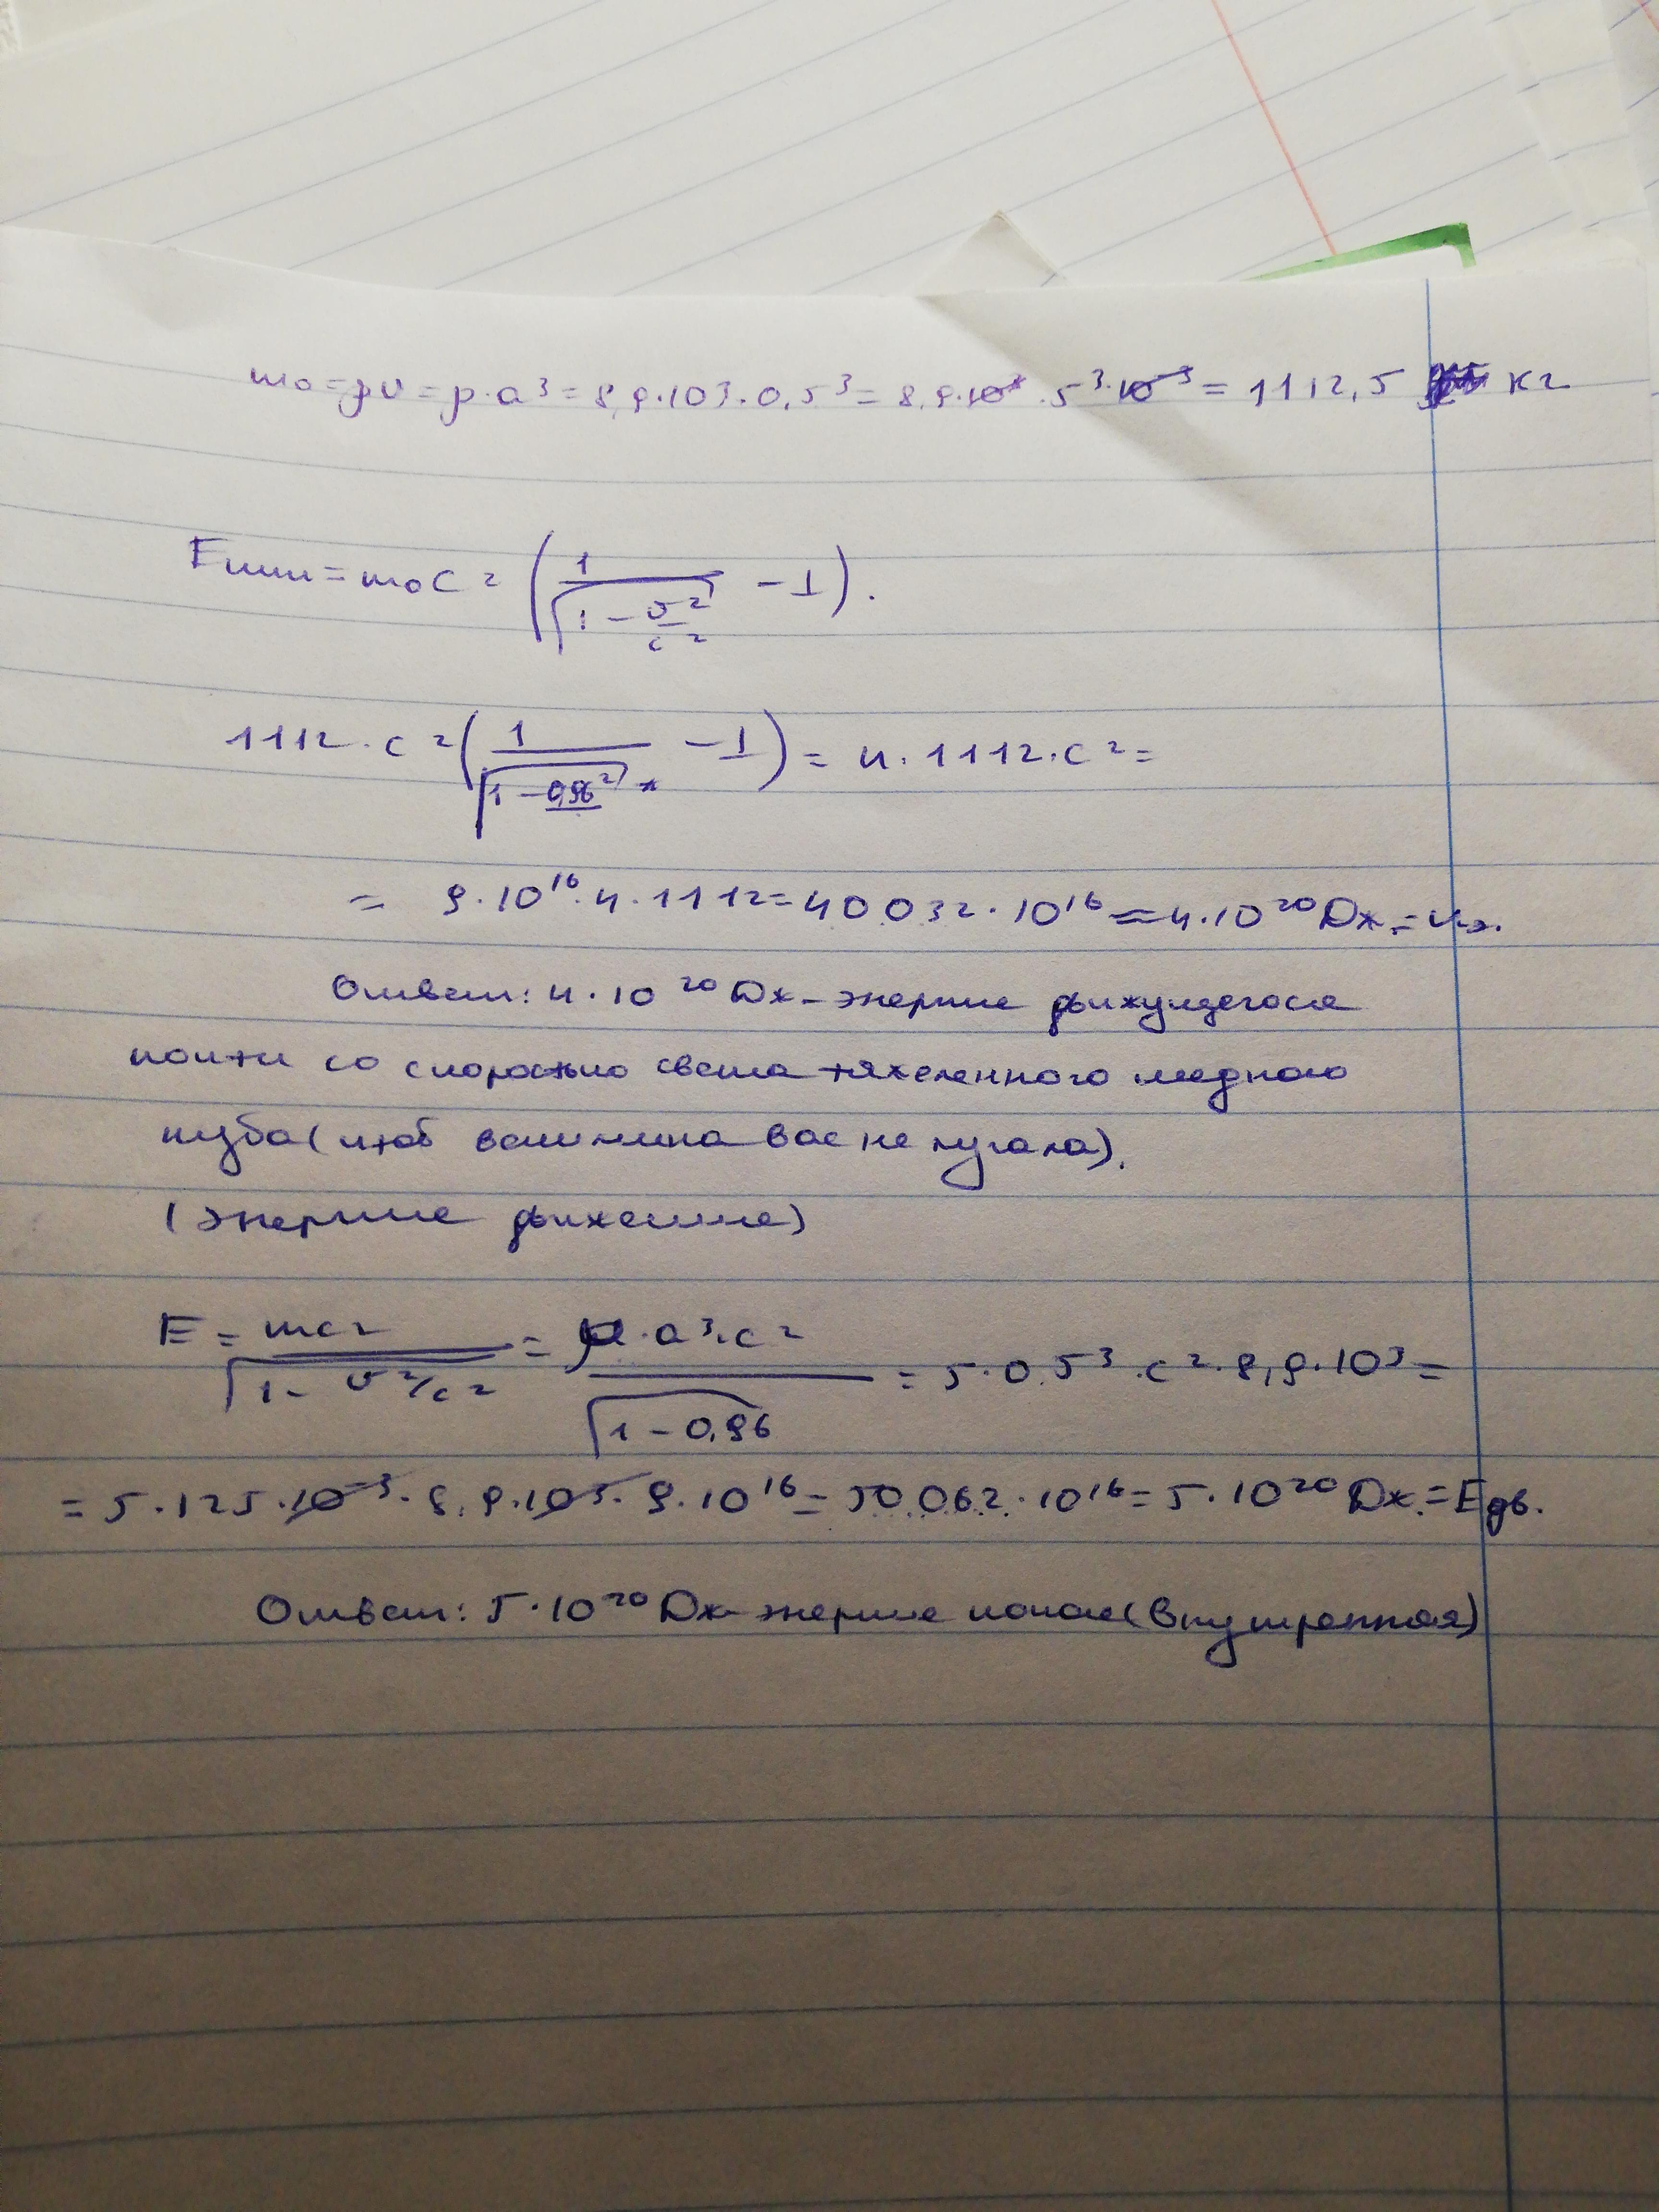 m₀=ρv=ρ·a³=8,9·10³·0,5³=8,9·10³·5³·10⁻³=1112,5 кг
Eкин=m₀c²(1/√(1-v²/c²) -1).
1112·c²(1/√(1-0,96²) -1)=4·1112·c²=
= 9·10¹⁶·4·1112=40032·10¹⁶≈4·10²⁰Дж.=
Ответ: 4·10²⁰Дж-энергия движущегося
почти со скоростью света тяжеленного медного
куба(чтоб величина вас не пугала).
(энергия движения)
E=mc²/√(1-v²/c²)=ρ·a³·c²/√(1-0,96)=5·0,5³·c²·8,9·10³=
=5·125·10⁻³·8,9·10³·9·10¹⁶=50062·10¹⁶=5·10²⁰Дж.=Eдв.
Ответ: 5·10²⁰Дж-энергия покоя(внутренная)